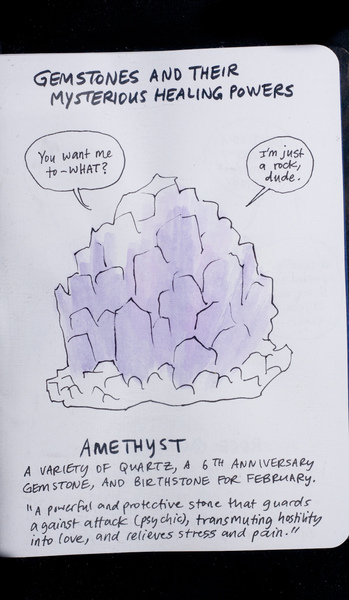 GEMSTONES AND THEIR
MYSTERIOUS HEALING POWERS
You want me
to-WHAT?
I'm just
a rock,
dude.
AMETHYST
A VARIETY OF QUARTZ, A 6TH ANNIVERSARY
GEMSTONE, AND BIRTHSTONE FOR FEBRUARY.
"A powerful and protective stone that guards
against attack (psychic), transmuting hostility
into love, and relieves stress and pain."